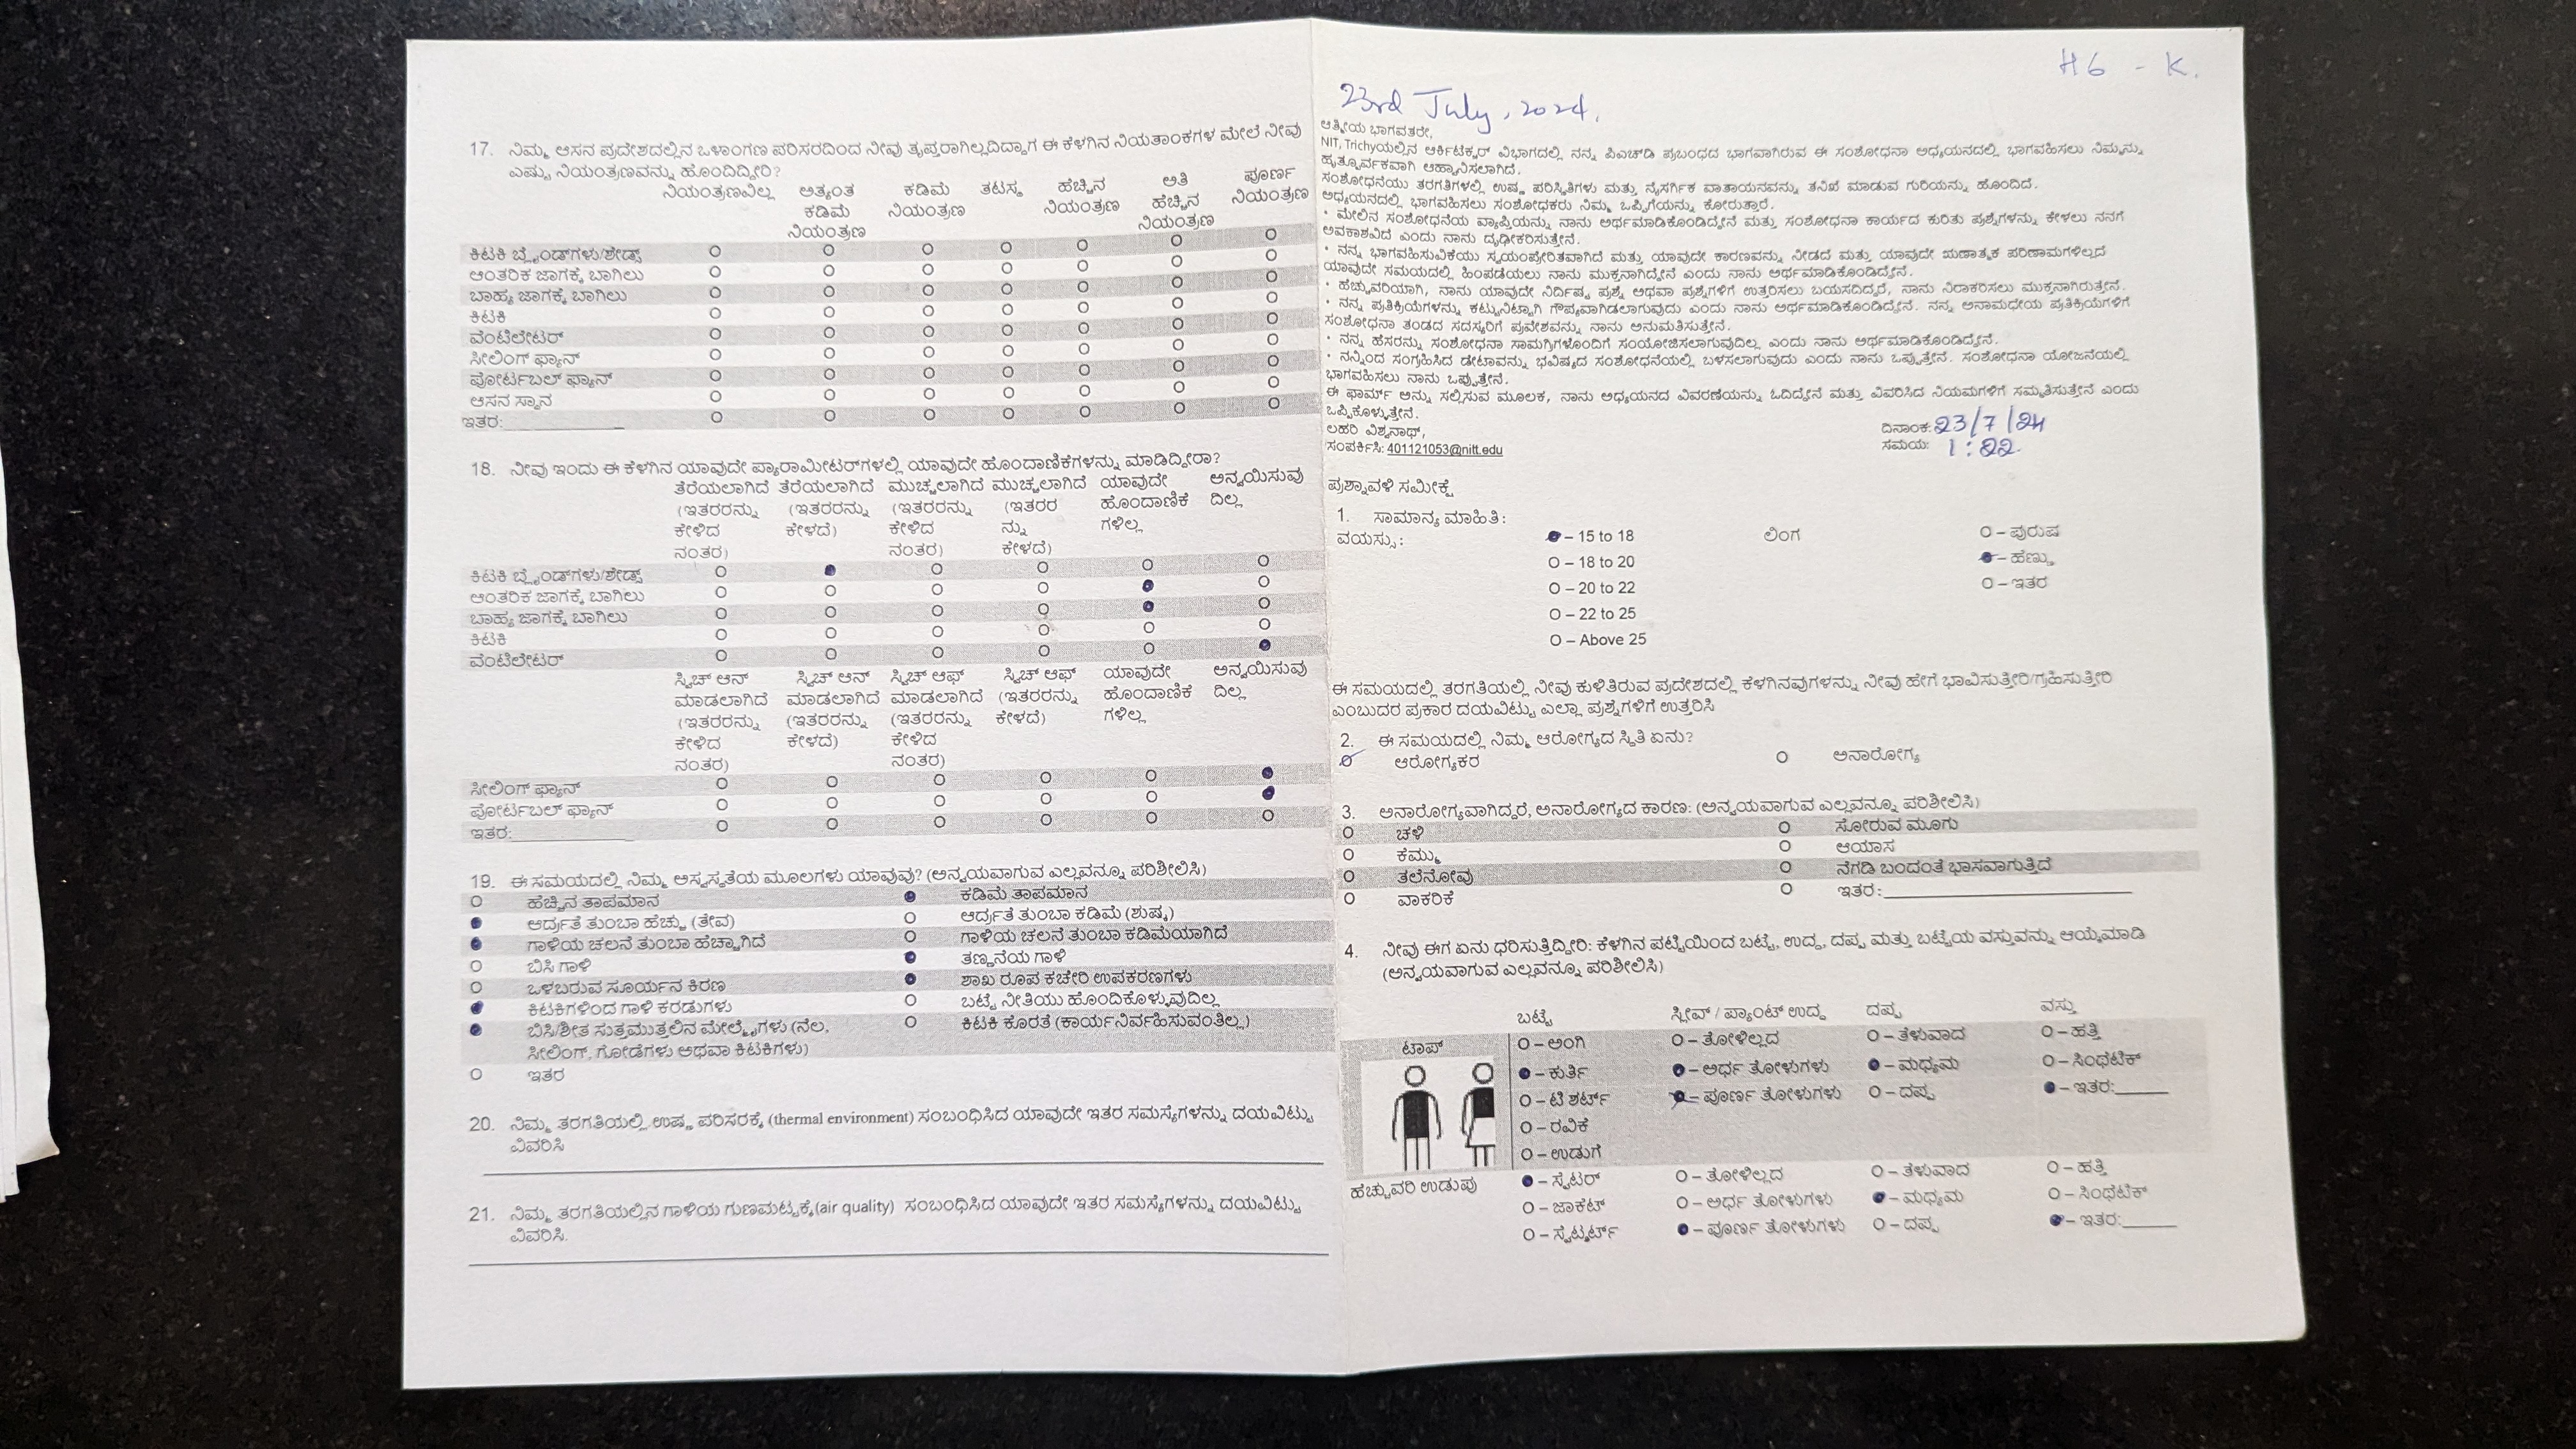 17. ನಿಮ್ಮ ಆಸನ ಪ್ರದೇಶದಲ್ಲಿನ ಒಳಾಂಗಣ ಪರಿಸರದಿಂದ ನೀವು ತೃಪ್ತರಾಗಿಲ್ಲದಿದ್ದಾಗ ಈ ಕೆಳಗಿನ ನಿಯತಾಂಕಗಳ ಮೇಲೆ ನೀವು
ಎಷ್ಟು ನಿಯಂತ್ರಣವನ್ನು ಹೊಂದಿದ್ದೀರಿ?
ನಿಯಂತ್ರಣವಿಲ್ಲ ಅತ್ಯಂತ ಕಡಿಮೆ ನಿಯಂತ್ರಣ ಕಡಿಮೆ ನಿಯಂತ್ರಣ ತಟಸ್ಥ ಹೆಚ್ಚಿನ ನಿಯಂತ್ರಣ ಅತಿ ಹೆಚ್ಚಿನ ನಿಯಂತ್ರಣ ಪೂರ್ಣ ನಿಯಂತ್ರಣ
ಕಿಟಕಿ ಬ್ಲೈಂಡ್‌ಗಳು/ಶೇಡ್ಸ್ O O O O O O O
ಆಂತರಿಕ ಜಾಗಕ್ಕೆ ಬಾಗಿಲು O O O O O O O
ಬಾಹ್ಯ ಜಾಗಕ್ಕೆ ಬಾಗಿಲು O O O O O O O
ಕಿಟಕಿ O O O O O O O
ವೆಂಟಿಲೇಟರ್ O O O O O O O
ಸೀಲಿಂಗ್ ಫ್ಯಾನ್ O O O O O O O
ಪೋರ್ಟಬಲ್ ಫ್ಯಾನ್ O O O O O O O
ಆಸನ ಸ್ಥಾನ O O O O O O O
ಇತರ: O O O O O O O
18. ನೀವು ಇಂದು ಈ ಕೆಳಗಿನ ಯಾವುದೇ ಪ್ಯಾರಾಮೀಟರ್‌ಗಳಲ್ಲಿ ಯಾವುದೇ ಹೊಂದಾಣಿಕೆಗಳನ್ನು ಮಾಡಿದ್ದೀರಾ?
ತೆರೆಯಲಾಗಿದೆ (ಇತರರನ್ನು ಕೇಳಿದ ನಂತರ) ತೆರೆಯಲಾಗಿದೆ (ಇತರರನ್ನು ಕೇಳದೆ) ಮುಚ್ಚಲಾಗಿದೆ (ಇತರರನ್ನು ಕೇಳಿದ ನಂತರ) ಮುಚ್ಚಲಾಗಿದೆ (ಇತರರನ್ನು ಕೇಳದೆ) ಯಾವುದೇ ಹೊಂದಾಣಿಕೆಗಳಿಲ್ಲ ಅನ್ವಯಿಸುವುದಿಲ್ಲ
ಕಿಟಕಿ ಬ್ಲೈಂಡ್‌ಗಳು/ಶೇಡ್ಸ್ O O O O O
ಆಂತರಿಕ ಜಾಗಕ್ಕೆ ಬಾಗಿಲು O O O O O
ಬಾಹ್ಯ ಜಾಗಕ್ಕೆ ಬಾಗಿಲು O O O O O
ಕಿಟಕಿ O O O O O O
ವೆಂಟಿಲೇಟರ್ O O O O O
ಸ್ವಿಚ್ ಆನ್ ಮಾಡಲಾಗಿದೆ (ಇತರರನ್ನು ಕೇಳಿದ ನಂತರ) ಸ್ವಿಚ್ ಆನ್ ಮಾಡಲಾಗಿದೆ (ಇತರರನ್ನು ಕೇಳದೆ) ಸ್ವಿಚ್ ಆಫ್ ಮಾಡಲಾಗಿದೆ (ಇತರರನ್ನು ಕೇಳಿದ ನಂತರ) ಸ್ವಿಚ್ ಆಫ್ (ಇತರರನ್ನು ಕೇಳದೆ) ಯಾವುದೇ ಹೊಂದಾಣಿಕೆಗಳಿಲ್ಲ ಅನ್ವಯಿಸುವುದಿಲ್ಲ
ಸೀಲಿಂಗ್ ಫ್ಯಾನ್ O O O O O
ಪೋರ್ಟಬಲ್ ಫ್ಯಾನ್ O O O O O
ಇತರ: O O O O O O
19. ಈ ಸಮಯದಲ್ಲಿ ನಿಮ್ಮ ಅಸ್ವಸ್ಥತೆಯ ಮೂಲಗಳು ಯಾವುವು? (ಅನ್ವಯವಾಗುವ ಎಲ್ಲವನ್ನೂ ಪರಿಶೀಲಿಸಿ)
O ಹೆಚ್ಚಿನ ತಾಪಮಾನ ಕಡಿಮೆ ತಾಪಮಾನ
ಆರ್ದ್ರತೆ ತುಂಬಾ ಹೆಚ್ಚು (ತೇವ) O ಆರ್ದ್ರತೆ ತುಂಬಾ ಕಡಿಮೆ (ಶುಷ್ಕ)
ಗಾಳಿಯ ಚಲನೆ ತುಂಬಾ ಹೆಚ್ಚಾಗಿದೆ O ಗಾಳಿಯ ಚಲನೆ ತುಂಬಾ ಕಡಿಮೆಯಾಗಿದೆ
O ಬಿಸಿ ಗಾಳಿ ತಣ್ಣನೆಯ ಗಾಳಿ
O ಒಳಬರುವ ಸೂರ್ಯನ ಕಿರಣ ಶಾಖ ರೂಪ ಕಚೇರಿ ಉಪಕರಣಗಳು
ಕಿಟಕಿಗಳಿಂದ ಗಾಳಿ ಕರಡುಗಳು O ಬಟ್ಟೆ ನೀತಿಯು ಹೊಂದಿಕೊಳ್ಳುವುದಿಲ್ಲ
ಬಿಸಿ/ಶೀತ ಸುತ್ತಮುತ್ತಲಿನ ಮೇಲ್ಮೈಗಳು (ನೆಲ, O ಕಿಟಕಿ ಕೊರತೆ (ಕಾರ್ಯನಿರ್ವಹಿಸುವಂತಿಲ್ಲ)
ಸೀಲಿಂಗ್, ಗೋಡೆಗಳು ಅಥವಾ ಕಿಟಕಿಗಳು)
O ಇತರ
20. ನಿಮ್ಮ ತರಗತಿಯಲ್ಲಿ ಉಷ್ಣ ಪರಿಸರಕ್ಕೆ (thermal environment) ಸಂಬಂಧಿಸಿದ ಯಾವುದೇ ಇತರ ಸಮಸ್ಯೆಗಳನ್ನು ದಯವಿಟ್ಟು
ವಿವರಿಸಿ
21. ನಿಮ್ಮ ತರಗತಿಯಲ್ಲಿನ ಗಾಳಿಯ ಗುಣಮಟ್ಟಕ್ಕೆ(air quality) ಸಂಬಂಧಿಸಿದ ಯಾವುದೇ ಇತರ ಸಮಸ್ಯೆಗಳನ್ನು ದಯವಿಟ್ಟು
ವಿವರಿಸಿ.
H6 - K.
23rd July, 2024.
ಆತ್ಮೀಯ ಭಾಗವತರೇ,
NIT, Trichyಯಲ್ಲಿನ ಆರ್ಕಿಟೆಕ್ಚರ್ ವಿಭಾಗದಲ್ಲಿ ನನ್ನ ಪಿಎಚ್‌ಡಿ ಪ್ರಬಂಧದ ಭಾಗವಾಗಿರುವ ಈ ಸಂಶೋಧನಾ ಅಧ್ಯಯನದಲ್ಲಿ ಭಾಗವಹಿಸಲು ನಿಮ್ಮನ್ನು
ಹೃತ್ಪೂರ್ವಕವಾಗಿ ಆಹ್ವಾನಿಸಲಾಗಿದೆ.
ಸಂಶೋಧನೆಯು ತರಗತಿಗಳಲ್ಲಿ ಉಷ್ಣ ಪರಿಸ್ಥಿತಿಗಳು ಮತ್ತು ನೈಸರ್ಗಿಕ ವಾತಾಯನವನ್ನು ತನಿಖೆ ಮಾಡುವ ಗುರಿಯನ್ನು ಹೊಂದಿದೆ.
ಅಧ್ಯಯನದಲ್ಲಿ ಭಾಗವಹಿಸಲು ಸಂಶೋಧಕರು ನಿಮ್ಮ ಒಪ್ಪಿಗೆಯನ್ನು ಕೋರುತ್ತಾರೆ.
• ಮೇಲಿನ ಸಂಶೋಧನೆಯ ವ್ಯಾಪ್ತಿಯನ್ನು ನಾನು ಅರ್ಥಮಾಡಿಕೊಂಡಿದ್ದೇನೆ ಮತ್ತು ಸಂಶೋಧನಾ ಕಾರ್ಯದ ಕುರಿತು ಪ್ರಶ್ನೆಗಳನ್ನು ಕೇಳಲು ನನಗೆ
ಅವಕಾಶವಿದೆ ಎಂದು ನಾನು ದೃಢೀಕರಿಸುತ್ತೇನೆ.
• ನನ್ನ ಭಾಗವಹಿಸುವಿಕೆಯು ಸ್ವಯಂಪ್ರೇರಿತವಾಗಿದೆ ಮತ್ತು ಯಾವುದೇ ಕಾರಣವನ್ನು ನೀಡದೆ ಮತ್ತು ಯಾವುದೇ ಋಣಾತ್ಮಕ ಪರಿಣಾಮಗಳಿಲ್ಲದೆ
ಯಾವುದೇ ಸಮಯದಲ್ಲಿ ಹಿಂಪಡೆಯಲು ನಾನು ಮುಕ್ತನಾಗಿದ್ದೇನೆ ಎಂದು ನಾನು ಅರ್ಥಮಾಡಿಕೊಂಡಿದ್ದೇನೆ.
• ಹೆಚ್ಚುವರಿಯಾಗಿ, ನಾನು ಯಾವುದೇ ನಿರ್ದಿಷ್ಟ ಪ್ರಶ್ನೆ ಅಥವಾ ಪ್ರಶ್ನೆಗಳಿಗೆ ಉತ್ತರಿಸಲು ಬಯಸದಿದ್ದರೆ, ನಾನು ನಿರಾಕರಿಸಲು ಮುಕ್ತನಾಗಿರುತ್ತೇನೆ.
• ನನ್ನ ಪ್ರತಿಕ್ರಿಯೆಗಳನ್ನು ಕಟ್ಟುನಿಟ್ಟಾಗಿ ಗೌಪ್ಯವಾಗಿಡಲಾಗುವುದು ಎಂದು ನಾನು ಅರ್ಥಮಾಡಿಕೊಂಡಿದ್ದೇನೆ. ನನ್ನ ಅನಾಮಧೇಯ ಪ್ರತಿಕ್ರಿಯೆಗಳಿಗೆ
ಸಂಶೋಧನಾ ತಂಡದ ಸದಸ್ಯರಿಗೆ ಪ್ರವೇಶವನ್ನು ನಾನು ಅನುಮತಿಸುತ್ತೇನೆ.
• ನನ್ನ ಹೆಸರನ್ನು ಸಂಶೋಧನಾ ಸಾಮಗ್ರಿಗಳೊಂದಿಗೆ ಸಂಯೋಜಿಸಲಾಗುವುದಿಲ್ಲ ಎಂದು ನಾನು ಅರ್ಥಮಾಡಿಕೊಂಡಿದ್ದೇನೆ.
• ನನ್ನಿಂದ ಸಂಗ್ರಹಿಸಿದ ಡೇಟಾವನ್ನು ಭವಿಷ್ಯದ ಸಂಶೋಧನೆಯಲ್ಲಿ ಬಳಸಲಾಗುವುದು ಎಂದು ನಾನು ಒಪ್ಪುತ್ತೇನೆ. ಸಂಶೋಧನಾ ಯೋಜನೆಯಲ್ಲಿ
ಭಾಗವಹಿಸಲು ನಾನು ಒಪ್ಪುತ್ತೇನೆ.
ಈ ಫಾರ್ಮ್ ಅನ್ನು ಸಲ್ಲಿಸುವ ಮೂಲಕ, ನಾನು ಅಧ್ಯಯನದ ವಿವರಣೆಯನ್ನು ಓದಿದ್ದೇನೆ ಮತ್ತು ವಿವರಿಸಿದ ನಿಯಮಗಳಿಗೆ ಸಮ್ಮತಿಸುತ್ತೇನೆ ಎಂದು
ಒಪ್ಪಿಕೊಳ್ಳುತ್ತೇನೆ.
ಲಹರಿ ವಿಶ್ವನಾಥ್, ದಿನಾಂಕ: 23/7/24
ಸಂಪರ್ಕಿಸಿ: 401121053@nitt.edu ಸಮಯ: 1:22
ಪ್ರಶ್ನಾವಳಿ ಸಮೀಕ್ಷೆ
1. ಸಾಮಾನ್ಯ ಮಾಹಿತಿ:
ವಯಸ್ಸು: – 15 to 18 ಲಿಂಗ O – ಪುರುಷ
O – 18 to 20 – ಹೆಣ್ಣು
O – 20 to 22 O – ಇತರ
O – 22 to 25
O – Above 25
ಈ ಸಮಯದಲ್ಲಿ ತರಗತಿಯಲ್ಲಿ ನೀವು ಕುಳಿತಿರುವ ಪ್ರದೇಶದಲ್ಲಿ ಕೆಳಗಿನವುಗಳನ್ನು ನೀವು ಹೇಗೆ ಭಾವಿಸುತ್ತೀರಿ/ಗ್ರಹಿಸುತ್ತೀರಿ
ಎಂಬುದರ ಪ್ರಕಾರ ದಯವಿಟ್ಟು ಎಲ್ಲಾ ಪ್ರಶ್ನೆಗಳಿಗೆ ಉತ್ತರಿಸಿ
2. ಈ ಸಮಯದಲ್ಲಿ ನಿಮ್ಮ ಆರೋಗ್ಯದ ಸ್ಥಿತಿ ಏನು?
O ಆರೋಗ್ಯಕರ O ಅನಾರೋಗ್ಯ
3. ಅನಾರೋಗ್ಯವಾಗಿದ್ದರೆ, ಅನಾರೋಗ್ಯದ ಕಾರಣ: (ಅನ್ವಯವಾಗುವ ಎಲ್ಲವನ್ನೂ ಪರಿಶೀಲಿಸಿ)
O ಚಳಿ O ಸೋರುವ ಮೂಗು
O ಕೆಮ್ಮು O ಆಯಾಸ
O ತಲೆನೋವು O ನೆಗಡಿ ಬಂದಂತೆ ಭಾಸವಾಗುತ್ತಿದೆ
O ವಾಕರಿಕೆ O ಇತರ:
4. ನೀವು ಈಗ ಏನು ಧರಿಸುತ್ತಿದ್ದೀರಿ: ಕೆಳಗಿನ ಪಟ್ಟಿಯಿಂದ ಬಟ್ಟೆ, ಉದ್ದ, ದಪ್ಪ ಮತ್ತು ಬಟ್ಟೆಯ ವಸ್ತುವನ್ನು ಆಯ್ಕೆಮಾಡಿ
(ಅನ್ವಯವಾಗುವ ಎಲ್ಲವನ್ನೂ ಪರಿಶೀಲಿಸಿ)
ಬಟ್ಟೆ ಸ್ಲೀವ್ / ಪ್ಯಾಂಟ್ ಉದ್ದ ದಪ್ಪ ವಸ್ತು
ಟಾಪ್ O – ಅಂಗಿ O – ತೋಳಿಲ್ಲದ O – ತೆಳುವಾದ O – ಹತ್ತಿ
– ಕುರ್ತಿ – ಅರ್ಧ ತೋಳುಗಳು – ಮಧ್ಯಮ O – ಸಿಂಥಟಿಕ್
O – ಟಿ ಶರ್ಟ್ – ಪೂರ್ಣ ತೋಳುಗಳು O – ದಪ್ಪ – ಇತರ:
O – ರವಿಕೆ
O – ಉಡುಗೆ
ಹೆಚ್ಚುವರಿ ಉಡುಪು – ಸ್ವೆಟರ್ O – ತೋಳಿಲ್ಲದ O – ತೆಳುವಾದ O – ಹತ್ತಿ
O – ಜಾಕೆಟ್ O – ಅರ್ಧ ತೋಳುಗಳು – ಮಧ್ಯಮ O – ಸಿಂಥಟಿಕ್
O – ಸ್ವೆಟ್ಶರ್ಟ್ – ಪೂರ್ಣ ತೋಳುಗಳು O – ದಪ್ಪ – ಇತರ: